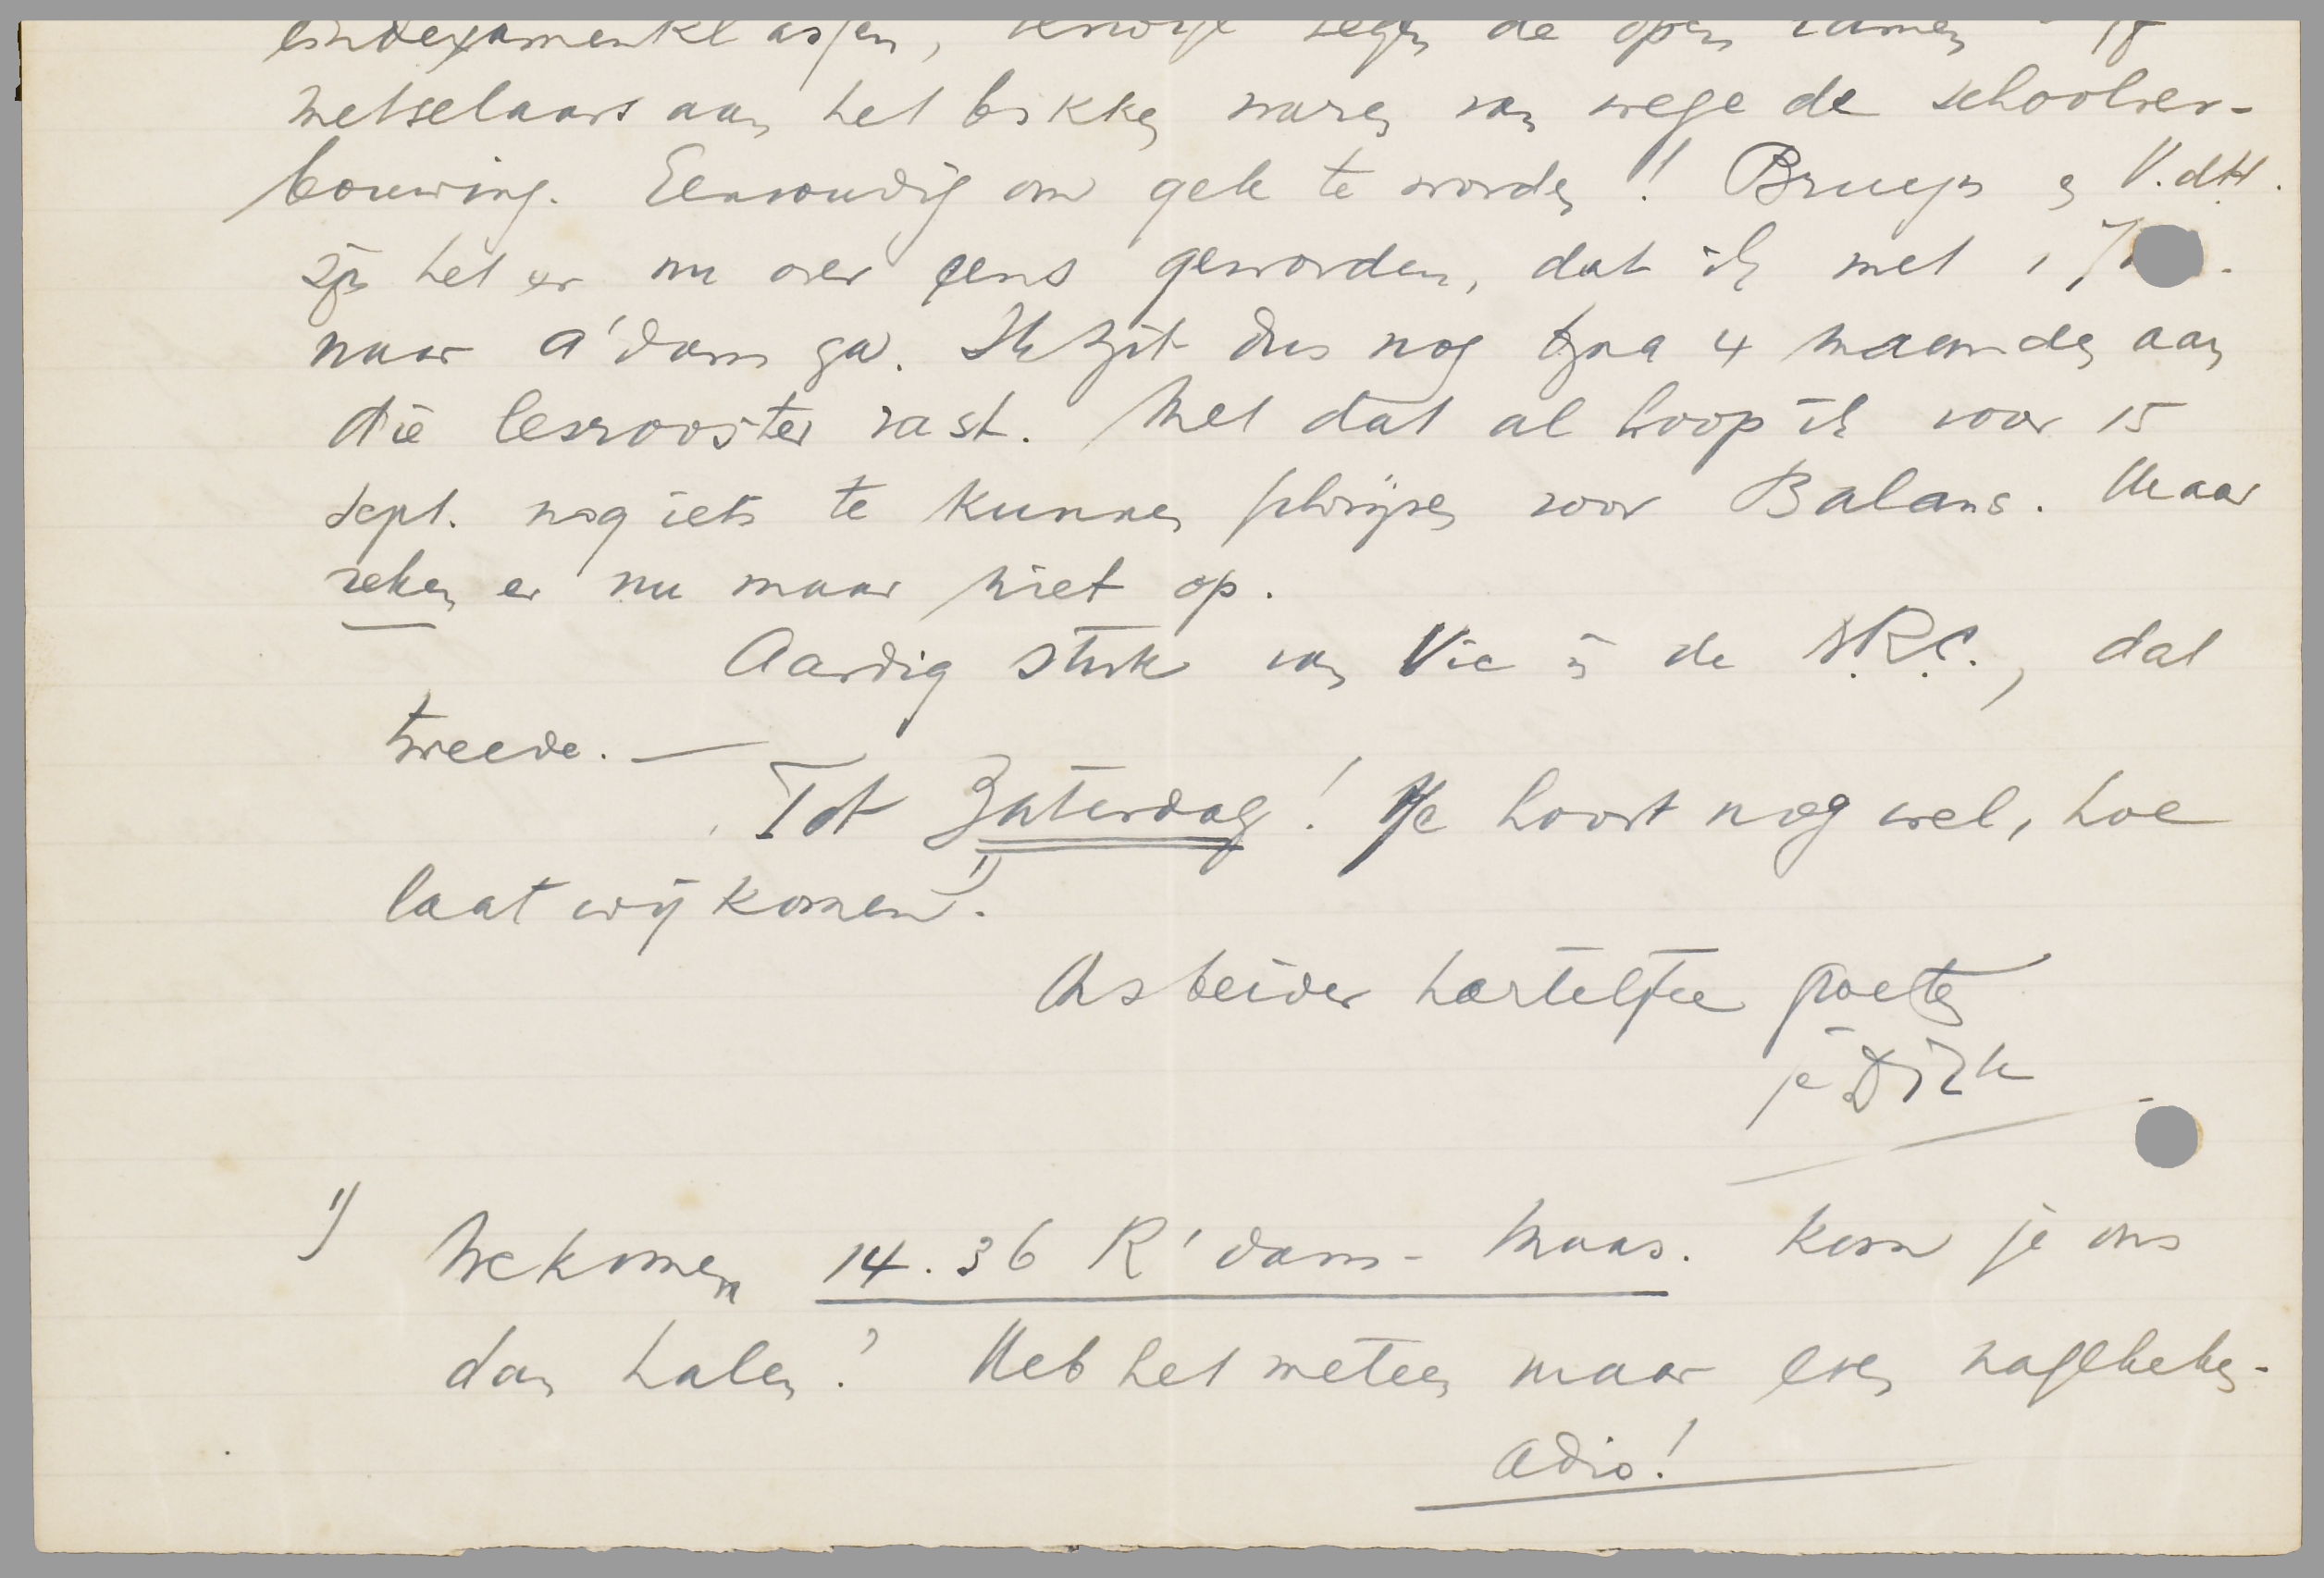 eindexamenklassen, terwijl tegen de open ramen
metselaars aan het bikken waren van wege de schoolver-
bouwing. Eenvoudig om gek te worden! Bruijn en V.d.H.
zijn het er nu over eens geworden, dat ik met 1
naar A'dam ga. Ik zit dus nog bijna 4 maanden aan
die lesrooster vast. Met dat al hoop ik voor 15
Sept. nog iets te kunnen schrijven voor Balans. Maar
reken er nu maar niet op.
Aardig stuk van Vic in de N.R.C., dat
tweede. —
Tot Zaterdag! Je hoort nog wel, hoe
laat wij komen 1).
Ons beider hartelijke groeten
je Dirk
1) We komen 14.36 R'dam - Maas. Kom je ons
dan halen? Heb het meteen maar even nagekeken.
Adio!